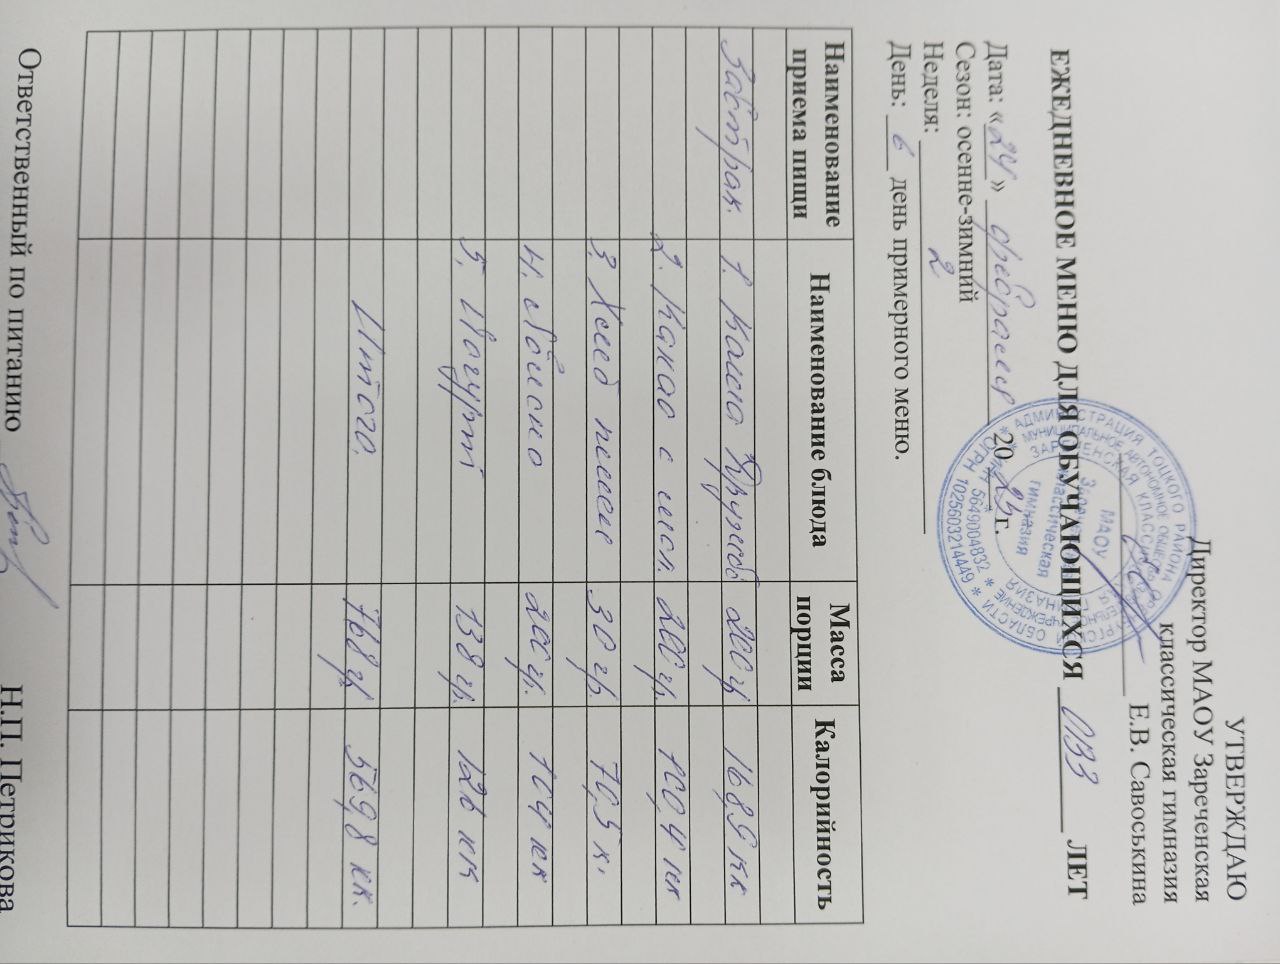 УТВЕРЖДАЮ
Директор МАОУ Зареченская
классическая гимназия
Е.В. Савоськина
ЕЖЕДНЕВНОЕ МЕНЮ ДЛЯ ОБУЧАЮЩИХСЯ ОВЗ ЛЕТ
Дата: «24» февраля 20 г.
Сезон: осенне-зимний
Неделя: 2
День: 6 день примерного меню.
Наименование приема пищи Наименование блюда Масса порции Калорийность
Завтрак. 1. Каша Дружба 200 гр 168,9 кк
2. Какао с мол. 200 гр. 100,4 кк
3. Хлеб пшен 30 гр. 70,5 к.
4. Яблоко 200 гр. 104 кк
5. Йогурт 138 гр. 126 кк
Итого. 768 гр 569,8 кк.
Ответственный по питанию Н.П. Петрикова
АДМИНИСТРАЦИЯ ТОЦКОГО РАЙОНА ОБЛАСТИ * ОГРН 1025603214449 *
МУНИЦИПАЛЬНОЕ АВТОНОМНОЕ УЧРЕЖДЕНИЕ * ИНН 5649004832 *
ЗАРЕЧЕНСКАЯ КЛАССИЧЕСКАЯ ГИМНАЗИЯ
МАОУ
классическая
гимназия